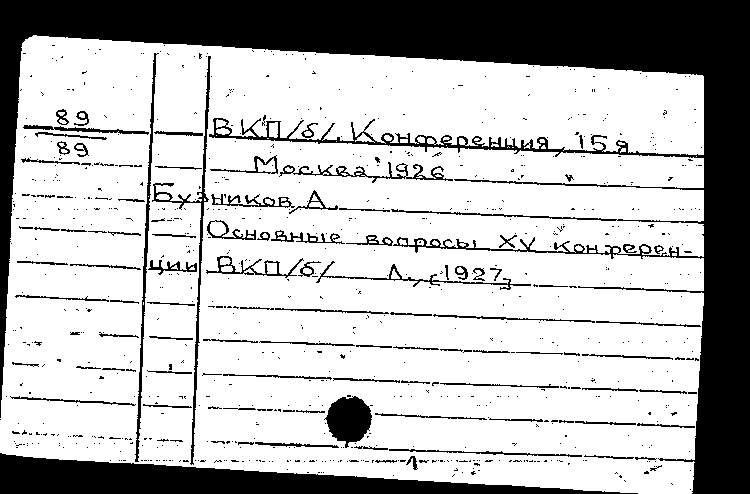 89
89
ВКП/б/. Конференция, 15я.
Москва, 1926
Бузников, А.
Основные вопросы XV конферен-
ции ВКП/б/ Л., [1927]
1